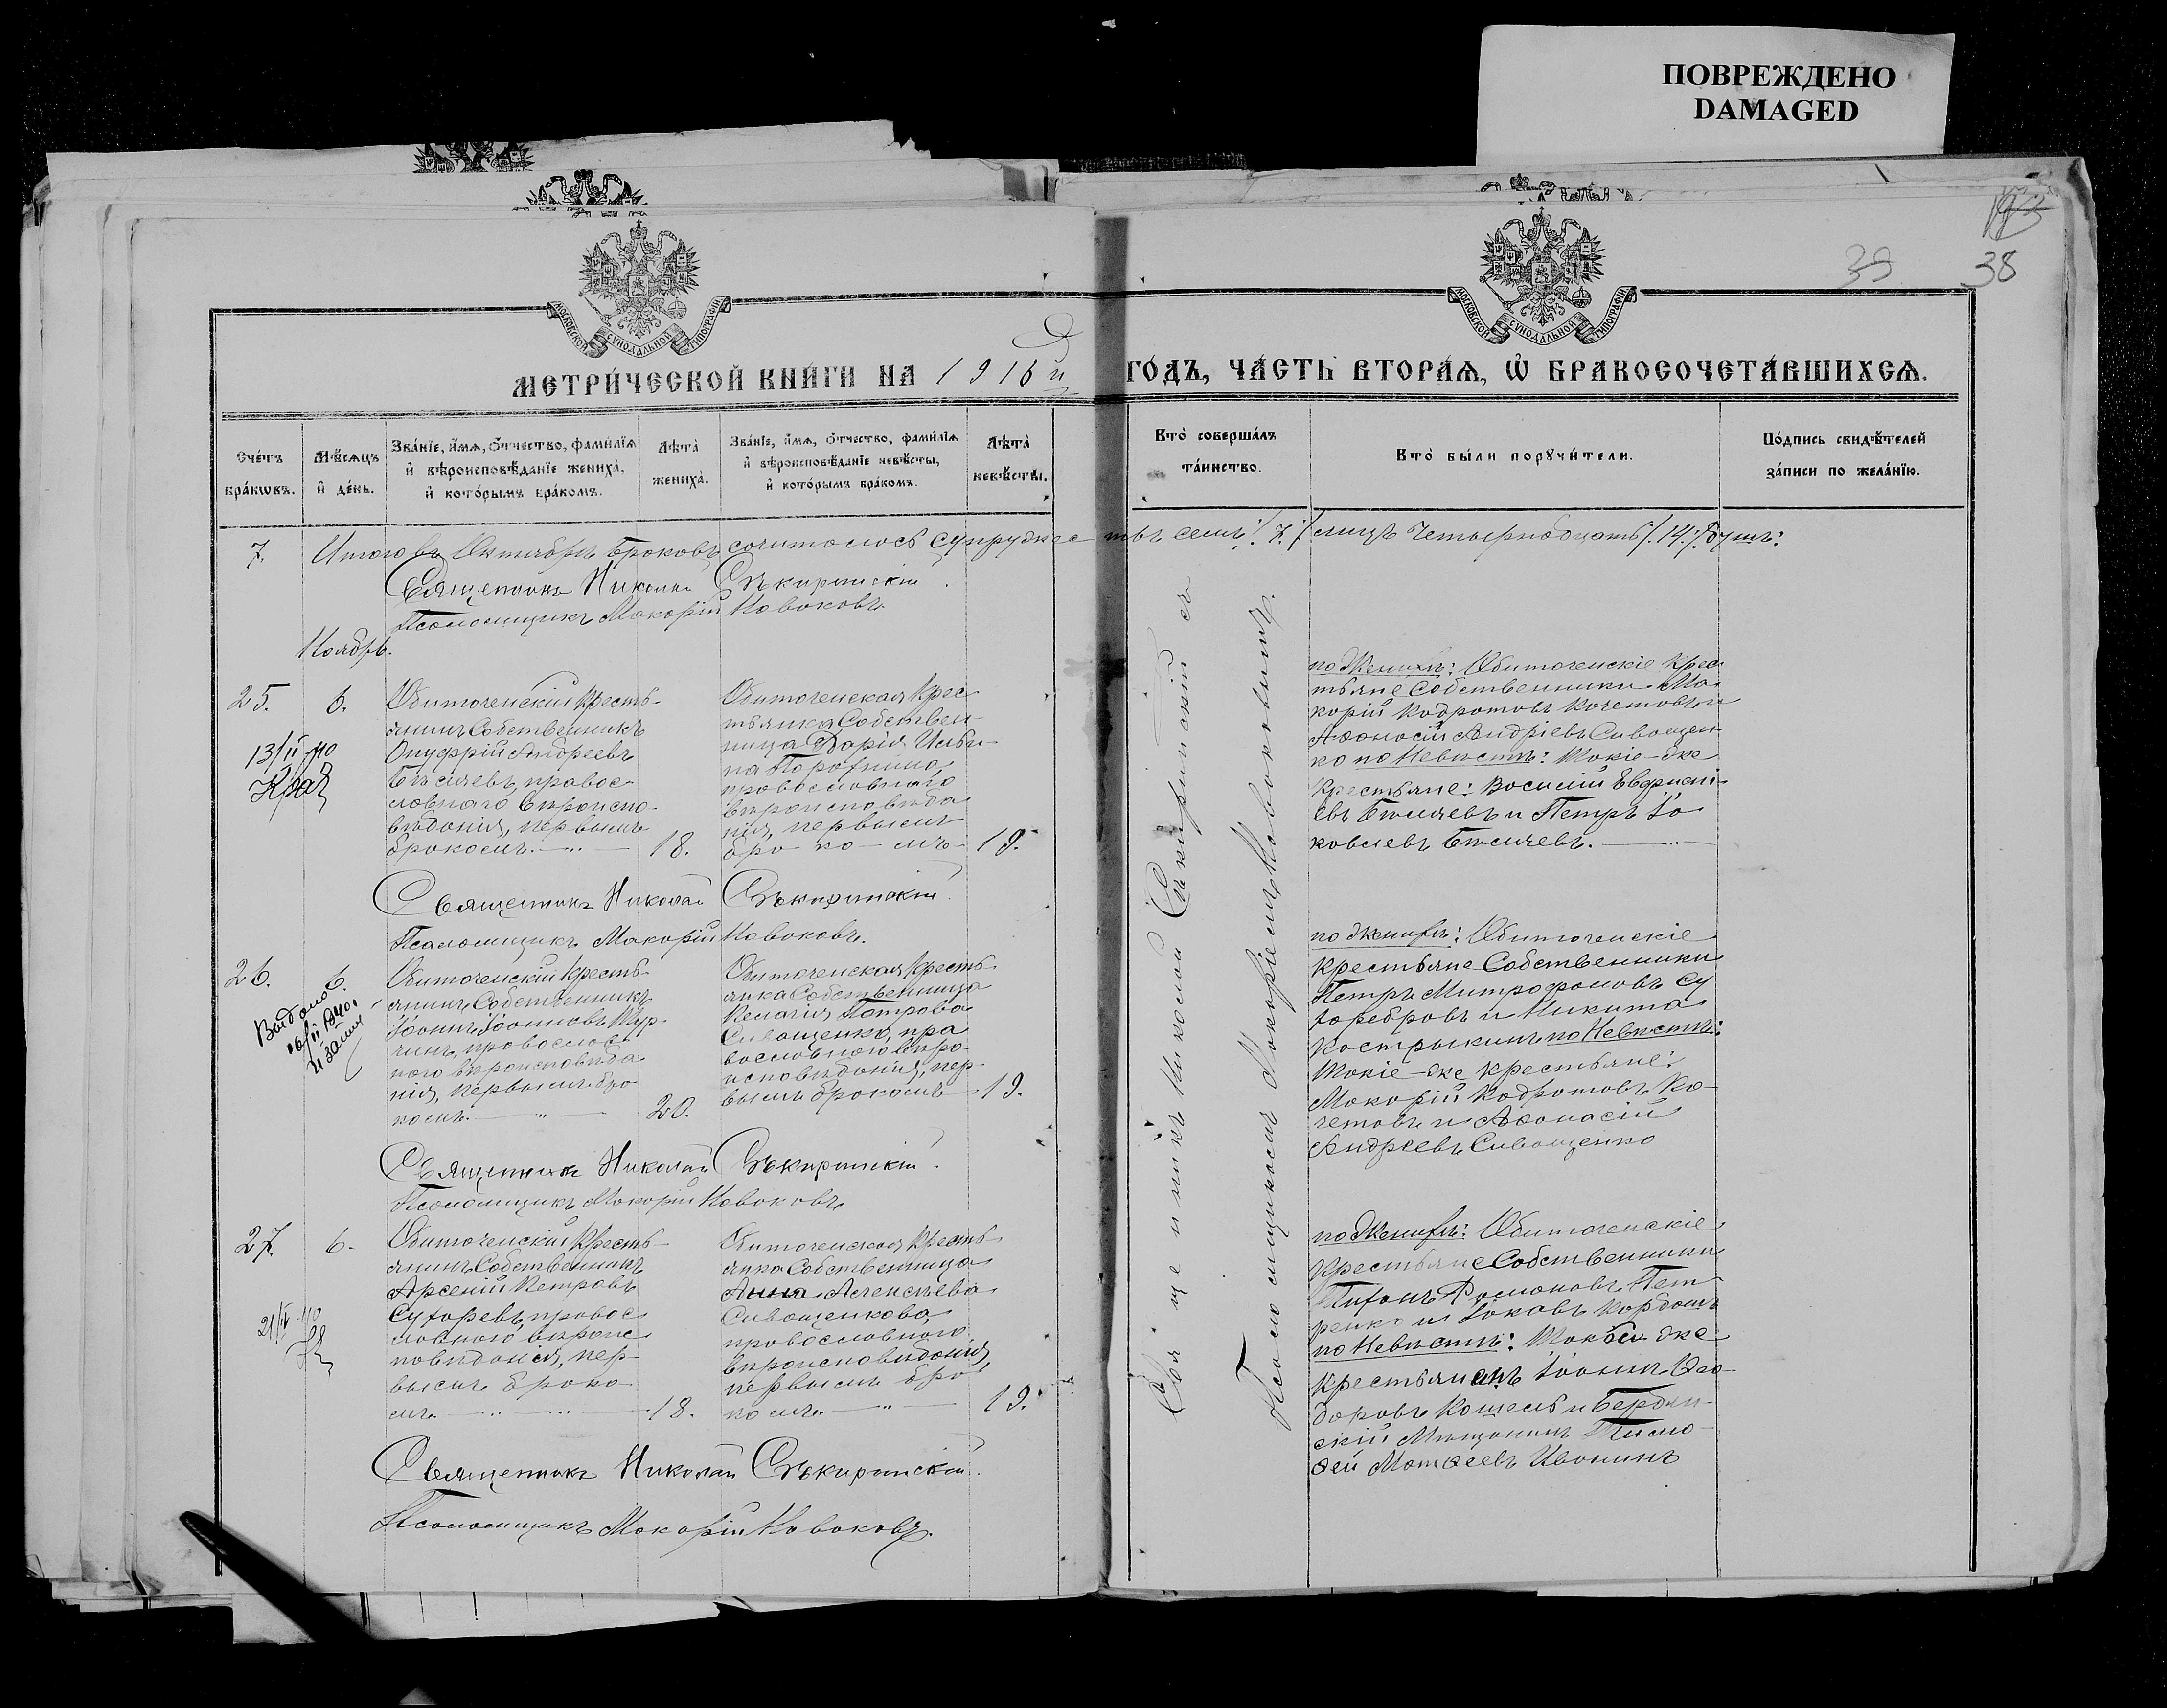 ПОВРЕЖДЕНО
DAMAGED
38
39
МОСКОВСКОЙ СУНОДАЛЬНОЙ ТИПОГРАФІИ
МОСКОВСКОЙ СУНОДАЛЬНОЙ ТИПОГРАФІИ
МЕТРИ́ЧЕСКОЙ КНИ́ГИ НА 1916й ГО́ДЪ, ЧА́СТЬ ВТОРА́Ѧ, Ѽ БРАКОСОЧЕТА́ВШИХСѦ.
Сче́тъ бра́кѡвъ.
Мѣ́сѧцъ и҆ де́нь.
Зва́нїе, и҆́мѧ, ѻ҆́тчество, фами́лїѧ и҆ вѣроисповѣ́данїе жениха̀, и҆ кото́рымъ бра́комъ.
Лѣта̀ жениха̀.
Зва́нїе, и҆́мѧ, ѻ҆́тчество, фами́лїѧ и҆ вѣроисповѣ́данїе невѣ́сты, и҆ кото́рымъ бра́комъ.
Лѣта̀ невѣ́сты.
Кто̀ соверша́лъ та́инство.
Кто̀ бы́ли порꙋчи́тели.
По́дпись свидѣ́телей за́писи по жела́нїю.
7. Итого въ Октябрѣ браковъ сочиталось супружествъ семь /.7./ лицъ четырнадцать /.14./ душъ:
Священникъ Николай Сѣкиринскій
Псаломщикъ Макарій Новаковъ.
Ноябрь.
25. 6.
13/II-40
Обиточенскій Кресть-
янинъ Собственникъ
Онуфрій Андреевъ
Бѣсячевъ, правос-
лавнаго вѣроиспо-
вѣданія, первымъ
бракомъ. 18.
Обиточенская Крес-
тьянка Собствен-
ница Дарія Ильи-
на
православнаго
вѣроисповѣда
нія, первымъ
бра-ко-мъ 19.
по Женихѣ: Обиточенскіе Крес-
тьяне Собственники Ма-
карій Кодратовъ Кочетовъ и
Аѳанасій Андріевъ Сиващен-
ко по Невѣстѣ: Такіе-же
Крестьяне: Василій
евъ Бѣсячевъ и Петръ Іа-
ковлевъ Бѣсячевъ.
Священникъ Николай Сѣкиринскій
Псаломщикъ Макарій Новаковъ.
26. 6.
Выдано
Обиточенскій Кресть-
янинъ Собственникъ
Іоаннъ Іоанновъ
православ-
наго вѣроисповѣда
нія, первымъ бра-
комъ. 20.
Обиточенская Кресть-
янка Собственница
Петрова
Сиващенко, пра
вославнаго вѣро-
исповѣданія, пер-
вымъ бракомъ 19.
по Женихѣ: Обиточенскіе
Крестьяне Собственники
Петръ Митрофановъ Су
хоребровъ и Никита
Кострыкинъ по Невѣстѣ:
Такіе-же крестьяне:
Макарій Кодратовъ Ко-
четовъ и Аѳанасій
Андреевъ Сиващенко
Священникъ Николай Сѣкиринскій.
Псаломщикъ Макарій Новаковъ
27. 6.
Обиточенскій Кресть-
янинъ Собственникъ
Арсеній Петровъ
Сухоревъ, правос-
лавнаго вѣроис-
повѣданія, пер-
вымъ брако-
мъ. 18.
Обиточенская Кресть-
янка Собственница
Анна Алексѣева
Сиващенкова,
православнаго
вѣроисповѣданія,
первымъ бра-
комъ. 19.
по Женихѣ: Обиточенскіе
Крестьяне Собственники
Тихонъ Романовъ Пет-
ренко и Іаковъ
по Невѣстѣ: Такой же
крестьянинъ Іоаннъ Ѳео-
доровъ Кошель и Бердян-
скій Мѣщанинъ Тимо-
ѳей Матѳеевъ Иванинъ
Священникъ Николай Сѣкиринскій.
Псаломщикъ Макарій Новаковъ.
Священникъ Николай Сѣкиринскій съ
Псаломщикомъ Макаріемъ Новаковымъ.